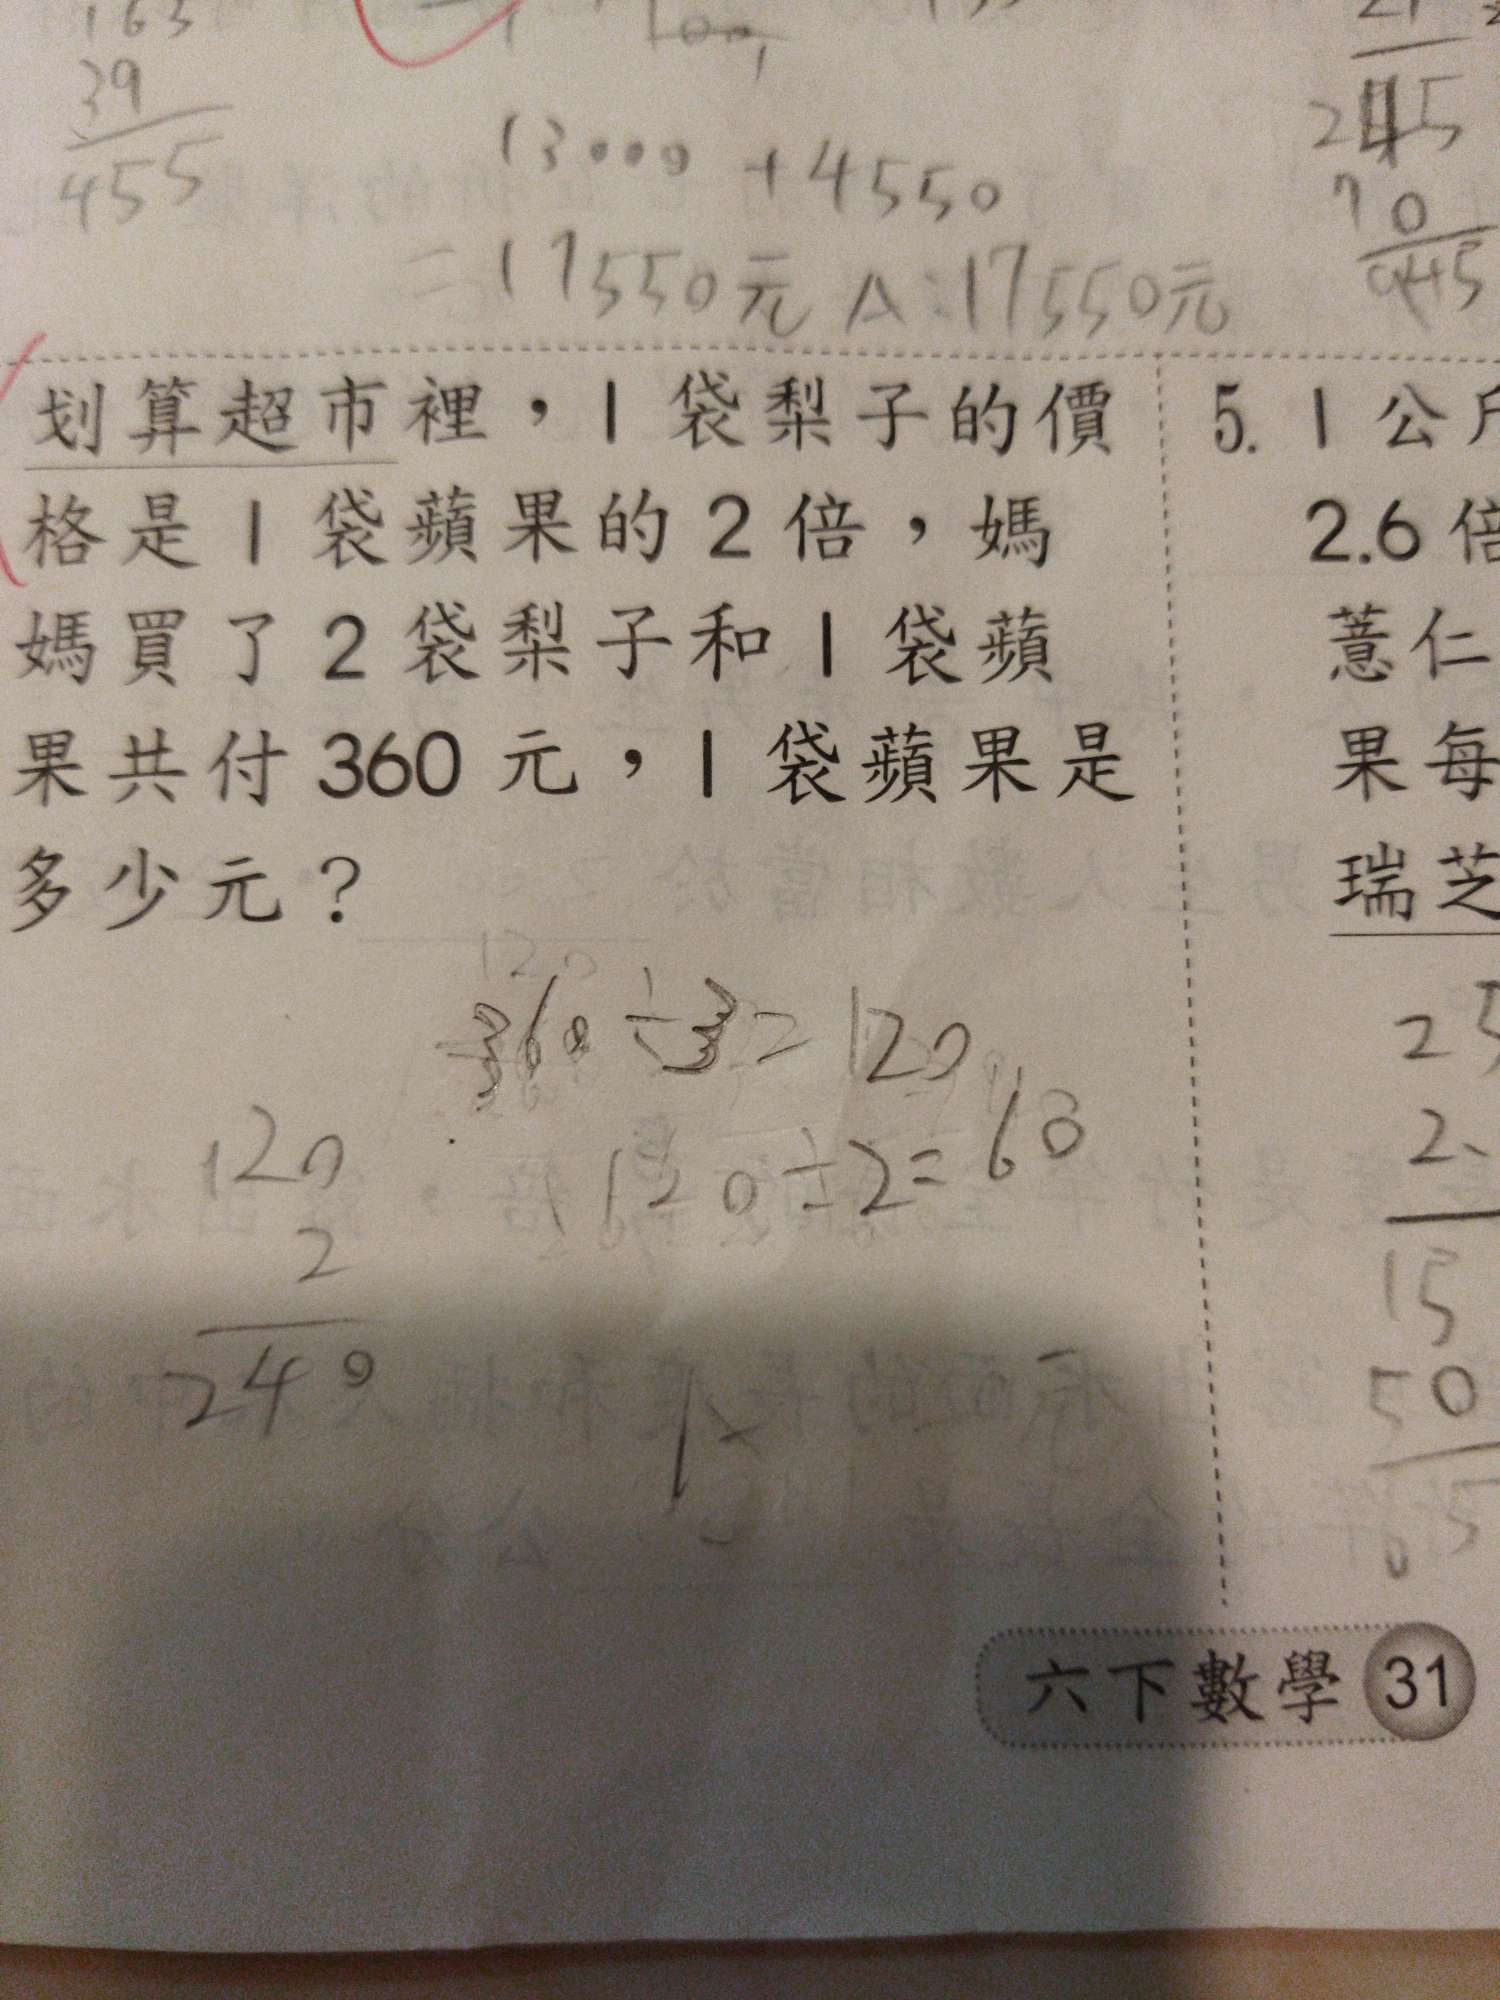 163
39
455
13000 + 4550
= 17550元 A:17550元
245
70
945
划算超市裡，1 袋梨子的價
格是 1 袋蘋果的 2 倍，媽
媽買了 2 袋梨子和 1 袋蘋
果共付 360 元，1 袋蘋果是
多少元？
120
360 ÷ 3 = 120
120 ÷ 2 = 60
120
2
240
5. 1 公
2.6 倍
薏仁
果每
瑞芝
25
2.
15
50
六下數學 31